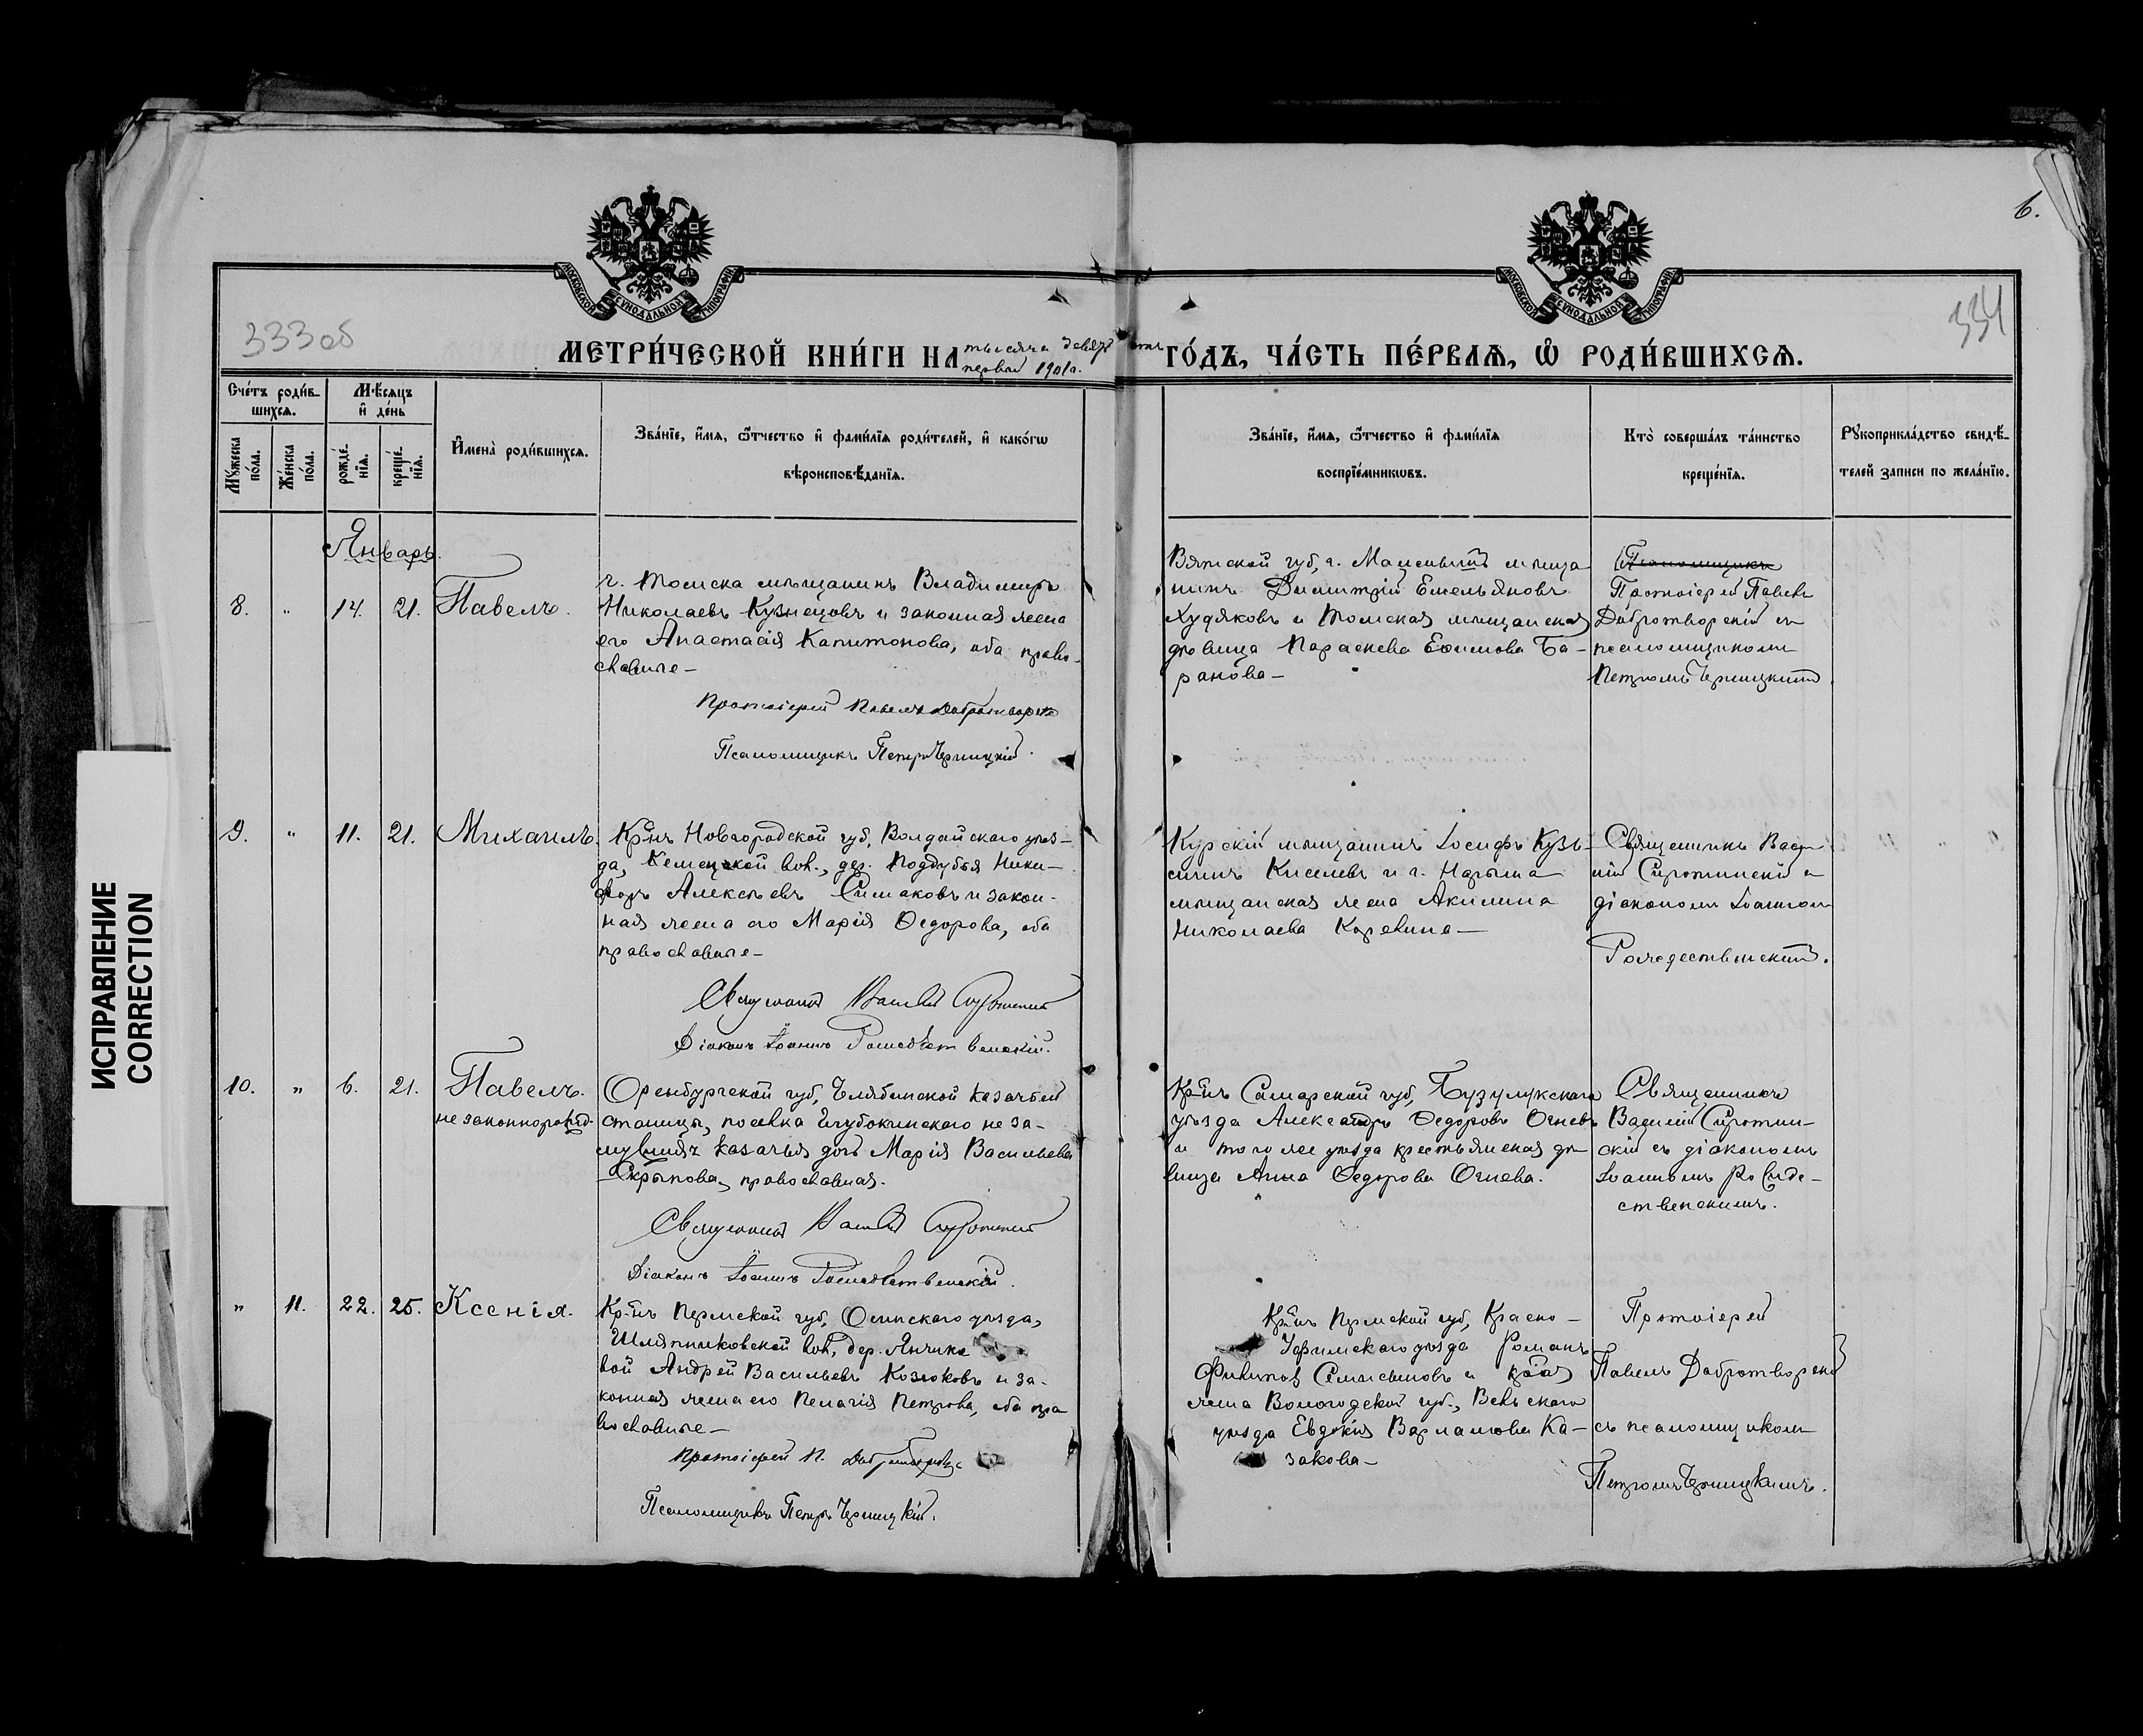 6.
МОСКОВСКОЙ СѴНОДАЛЬНОЙ ТИПОГРАФІИ
МОСКОВСКОЙ СѴНОДАЛЬНОЙ ТИПОГРАФІИ
333об
334
МЕТРИ́ЧЕСКОЙ КНИ́ГИ НА тысяча девять сотъ первый 1901 г. ГО́ДЪ, ЧА́СТЬ ПЕ́РВАѦ, Ѽ РОДИ́ВШИХСѦ.
Сче́тъ роди́в-
шихсѧ.
Мꙋ́жеска
по́ла.
Же́нска
по́ла.
Мѣ́сѧцъ
и҆ де́нь
рожде́-
нїѧ.
креще́-
нїѧ.
И҆мена̀ роди́вшихсѧ.
Зва́нїе, и҆́мѧ, ѻ҆́тчество и҆ фами́лїѧ роди́телей, и҆ како́гѡ
вѣроисповѣ́данїѧ.
Зва́нїе, и҆́мѧ, ѻ҆́тчество и҆ фами́лїѧ
воспрїе́мникѡвъ.
Кто̀ соверша́лъ та́инство
креще́нїѧ.
Рꙋкоприкла́дство свидѣ́-
телей записи по жела́нїю.
Январь.
8. " 14. 21. Павелъ.
г. Томска мѣщанинъ Владимиръ
Николаевъ Кузнецовъ и законная жена
его Анастасія Капитонова, оба право-
славные—
Протоіерей Павелъ Добротворскій
Псаломщикъ Петръ Черницкій.
Вятской губ, г. Малмыжа мѣща
нинъ Димитрій Емельяновъ
Худяковъ и Томская мѣщанская
дѣвица Параскева Ефимова Ба-
ранова—
Псаломщикъ
Протоіерей Павелъ
Добротворскій съ
псаломщикомъ
Петромъ Черницкимъ.
9. " 11. 21. Михаилъ.
Кр-нъ Новгородской губ, Волдайскаго уѣз-
да, Кемецкой вол., дер. Поддубья Ники-
форъ Алексѣевъ Симаковъ и закон-
ная жена его Марія Ѳедорова, оба
православные—
Священникъ Василій Сиротинскій
Діаконъ Іоаннъ Рождественскій.
Курскій мѣщанинъ Іосифъ Кузь-
минъ Киселевъ и г. Нарыма
мѣщанская жена Акилина
Николаева Корвина—
Священникъ Васи
лій Сиротинскій и
діакономъ Іоанномъ
Рождественскимъ.
10. " 6. 21. Павелъ.
незаконнорожд.
Оренбургской губ, Челябинской казачьей
станицы, поселка Глубокинскаго не за-
мужняя казачья дочь Марія Васильева
Скрыпова, православная.
Священникъ Василій Сиротинскій
Діаконъ Іоаннъ Рождественскій.
Кр-нъ Самарской губ, Бузулукскаго
уѣзда Александръ Ѳедоровъ Огневъ
и того же уѣзда крестьянская дѣ
вица Анна Ѳедорова Огнева.
Священникъ
Василій Сиротин-
скій съ діакономъ
Іоанномъ Рожде-
ственскимъ.
" 11. 22. 25. Ксенія.
Кр-нъ Пермской губ, Осинскаго уѣзда,
Шляпниковской вол, дер. Янчико
вой Андрей Васильевъ Козюковъ и за-
конная жена его Пелагія Петрова, оба пра
вославные—
Протоіерей П. Добротворскій
Псаломщикъ Петръ Черницкій.
Кр-нъ Пермской губ, Красно-
Уфимскаго уѣзда Романъ
жена Вологодской губ., Вельскаго
уѣзда Евдокія Варламова Ка-
закова—
Протоіерей
Павелъ Добротворскій
съ псаломщикомъ
Петромъ Черницкимъ.
ИСПРАВЛЕНИЕ
CORRECTION